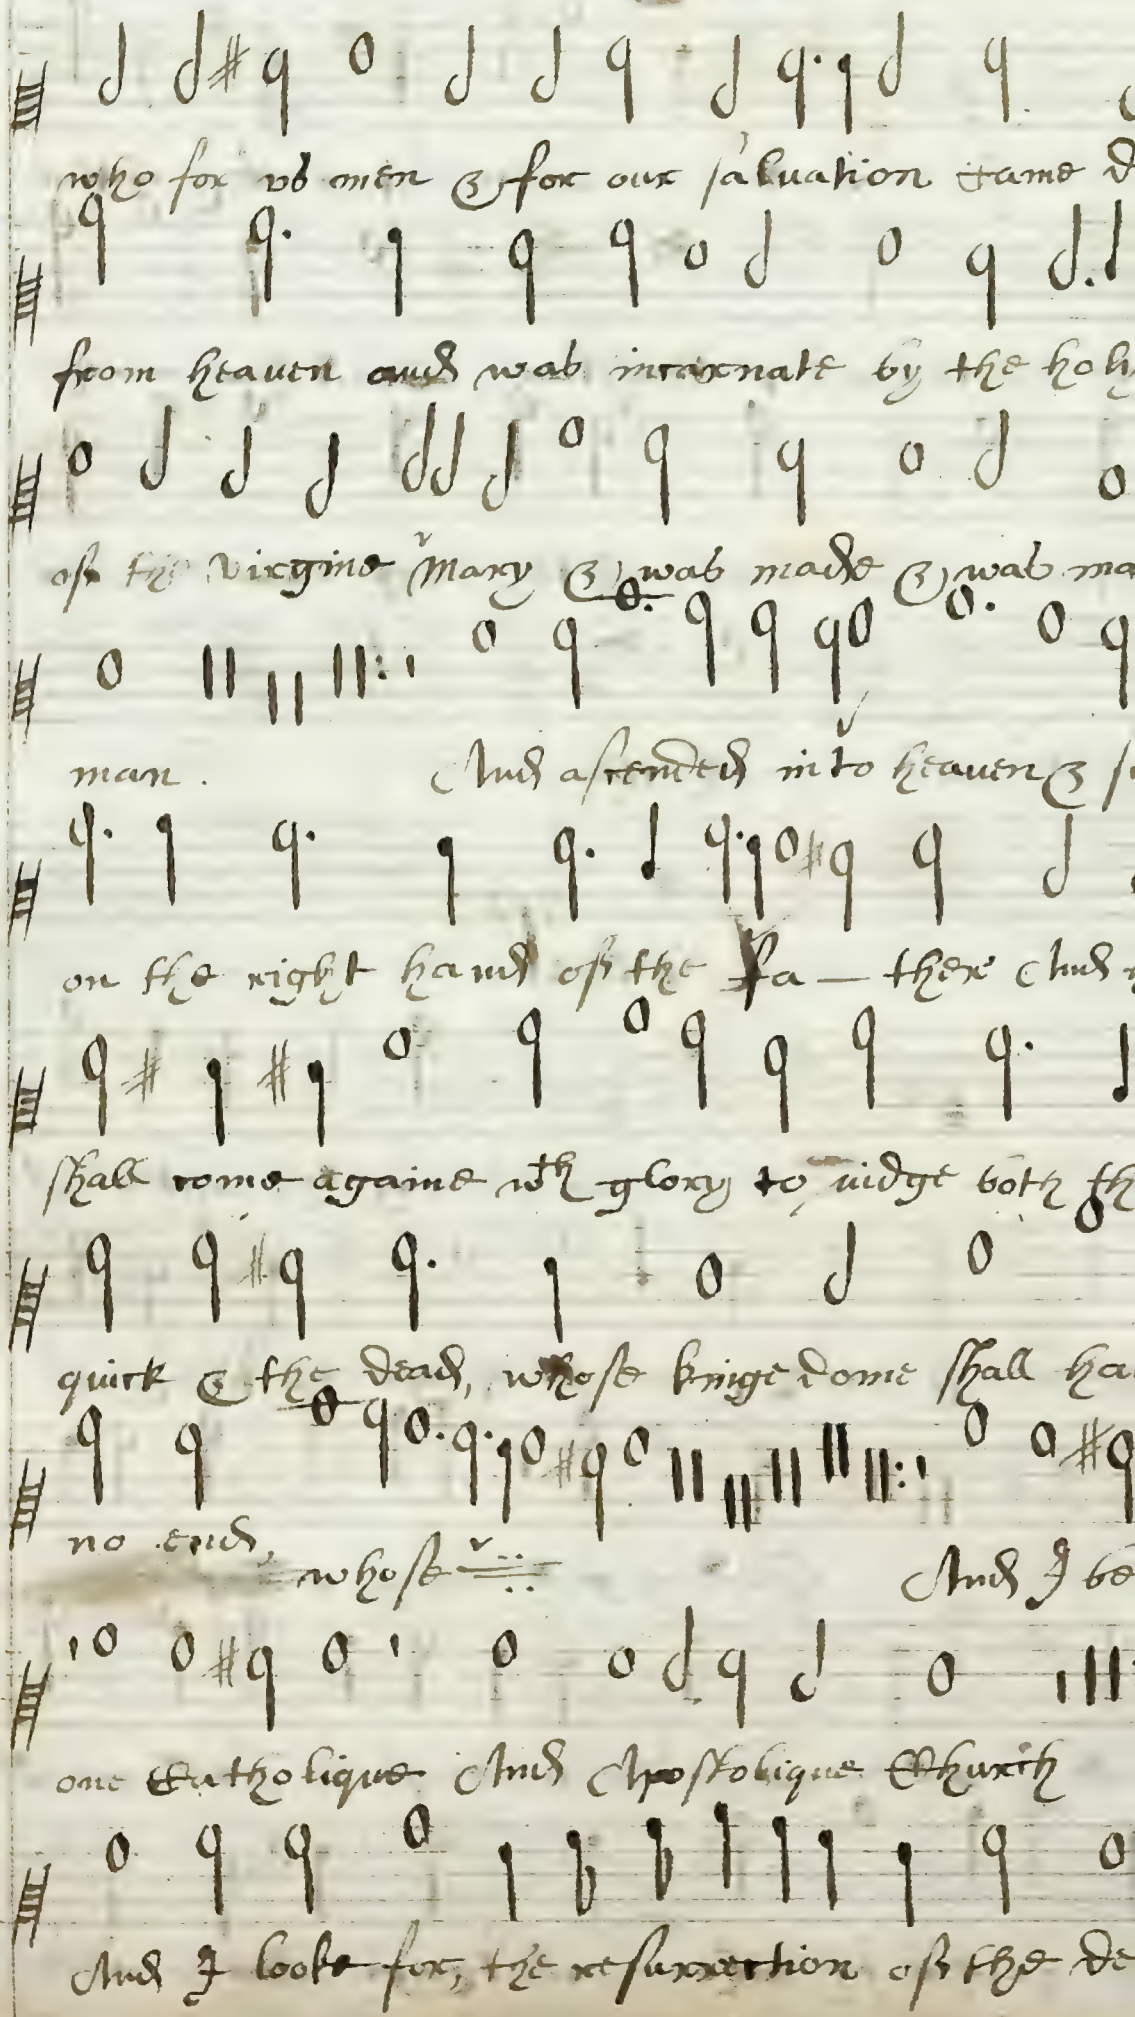 who for us men & for our saluation came d
from heauen and was incarnate by the holy
off the virgine Mary & was made & was ma
man.    And ascended into heauen & s
on the right hand off the fa— ther And
shall come againe wth glory to iudge both th
quick & the dead, whose kingedome shall ha
no end, whose    And I be
one Catholique And Apostolique Church
And I looke for, the resurrection off the de